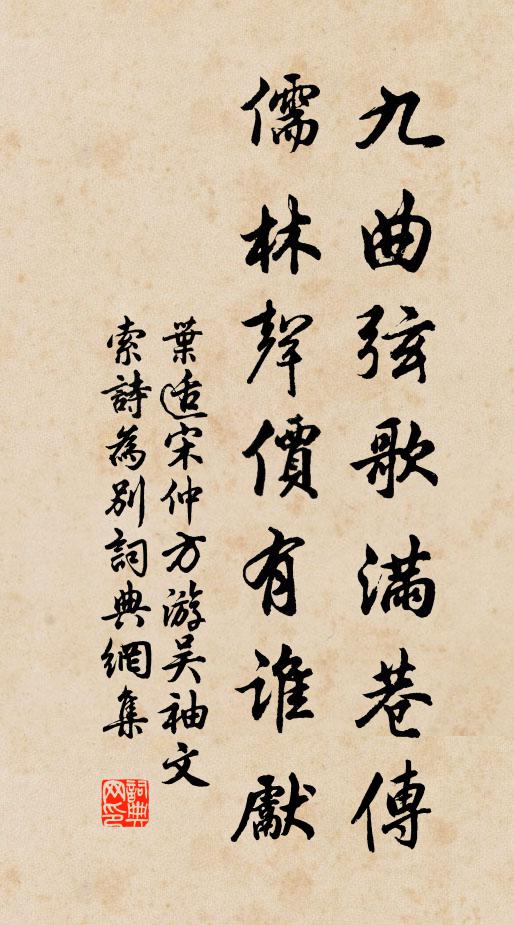 九曲弦歌滿巷傳
儒林聲價有誰獻
葉适宋仲方游吴袖文
索詩為别詞典網集
詞典网印